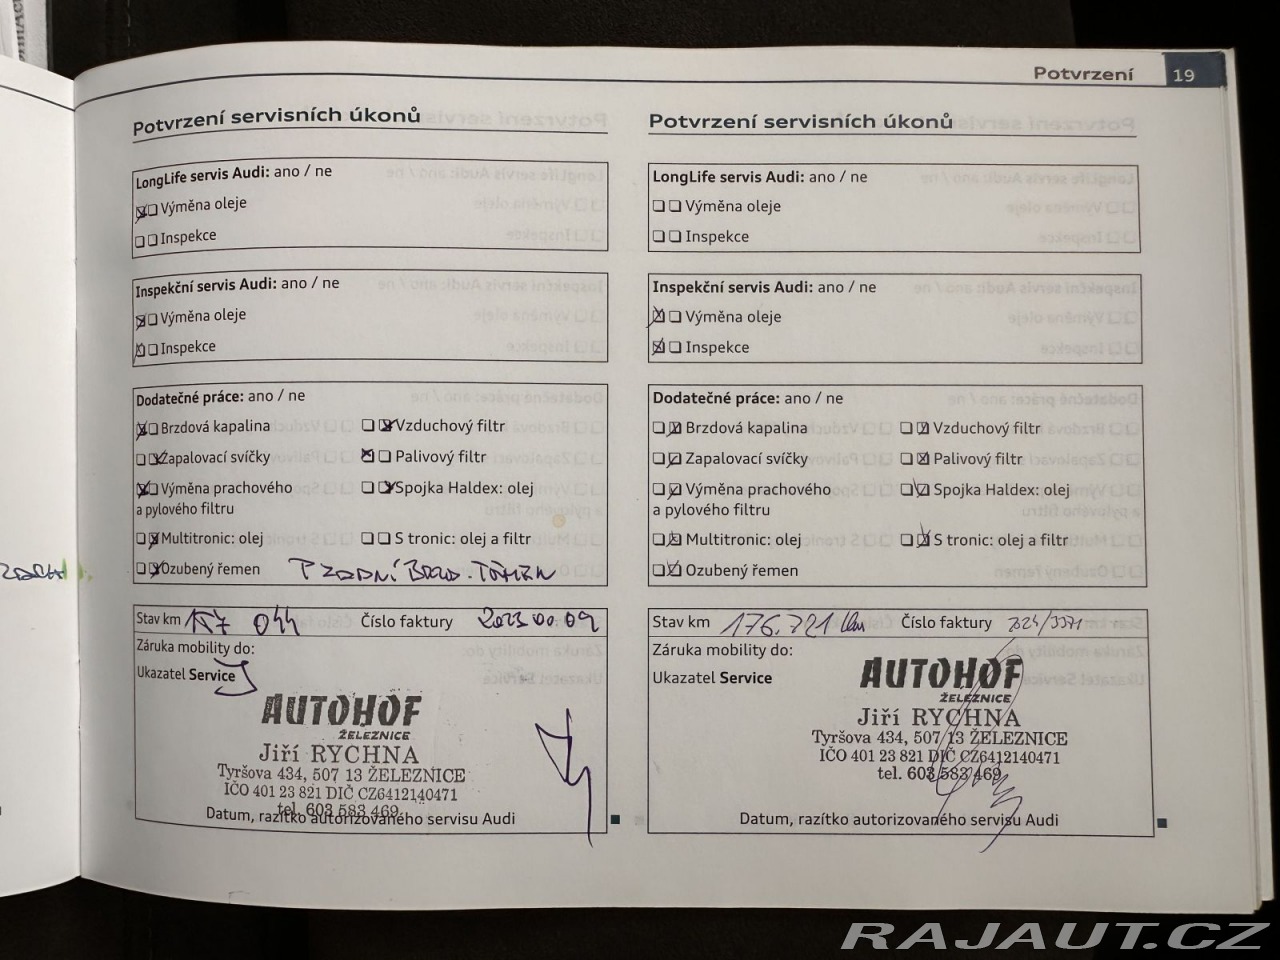 Potvrzení 19
Potvrzení servisních úkonů
LongLife servis Audi: ano / ne
Výměna oleje
Inspekce
Inspekční servis Audi: ano / ne
Výměna oleje
Inspekce
Dodatečné práce: ano / ne
Brzdová kapalina
Vzduchový filtr
Zapalovací svíčky
Palivový filtr
Výměna prachového
a pylového filtru
Spojka Haldex: olej
Multitronic: olej
S tronic: olej a filtr
Ozubený řemen
Stav km
044
Číslo faktury
Záruka mobility do:
Ukazatel Service
AUTOHOF
ŽELEZNICE
Jiří RYCHNA
Tyršova 434, 507 13 ŽELEZNICE
IČO 401 23 821 DIČ CZ6412140471
tel. 603 583 469
Datum, razítko autorizovaného servisu Audi
Potvrzení servisních úkonů
LongLife servis Audi: ano / ne
Výměna oleje
Inspekce
Inspekční servis Audi: ano / ne
Výměna oleje
Inspekce
Dodatečné práce: ano / ne
Brzdová kapalina
Vzduchový filtr
Zapalovací svíčky
Palivový filtr
Výměna prachového
a pylového filtru
Spojka Haldex: olej
Multitronic: olej
S tronic: olej a filtr
Ozubený řemen
Stav km 176.721 km
Číslo faktury
Záruka mobility do:
Ukazatel Service
AUTOHOF
ŽELEZNICE
Jiří RYCHNA
Tyršova 434, 507 13 ŽELEZNICE
IČO 401 23 821 DIČ CZ6412140471
tel. 603 583 469
Datum, razítko autorizovaného servisu Audi
RAJAUT.CZ